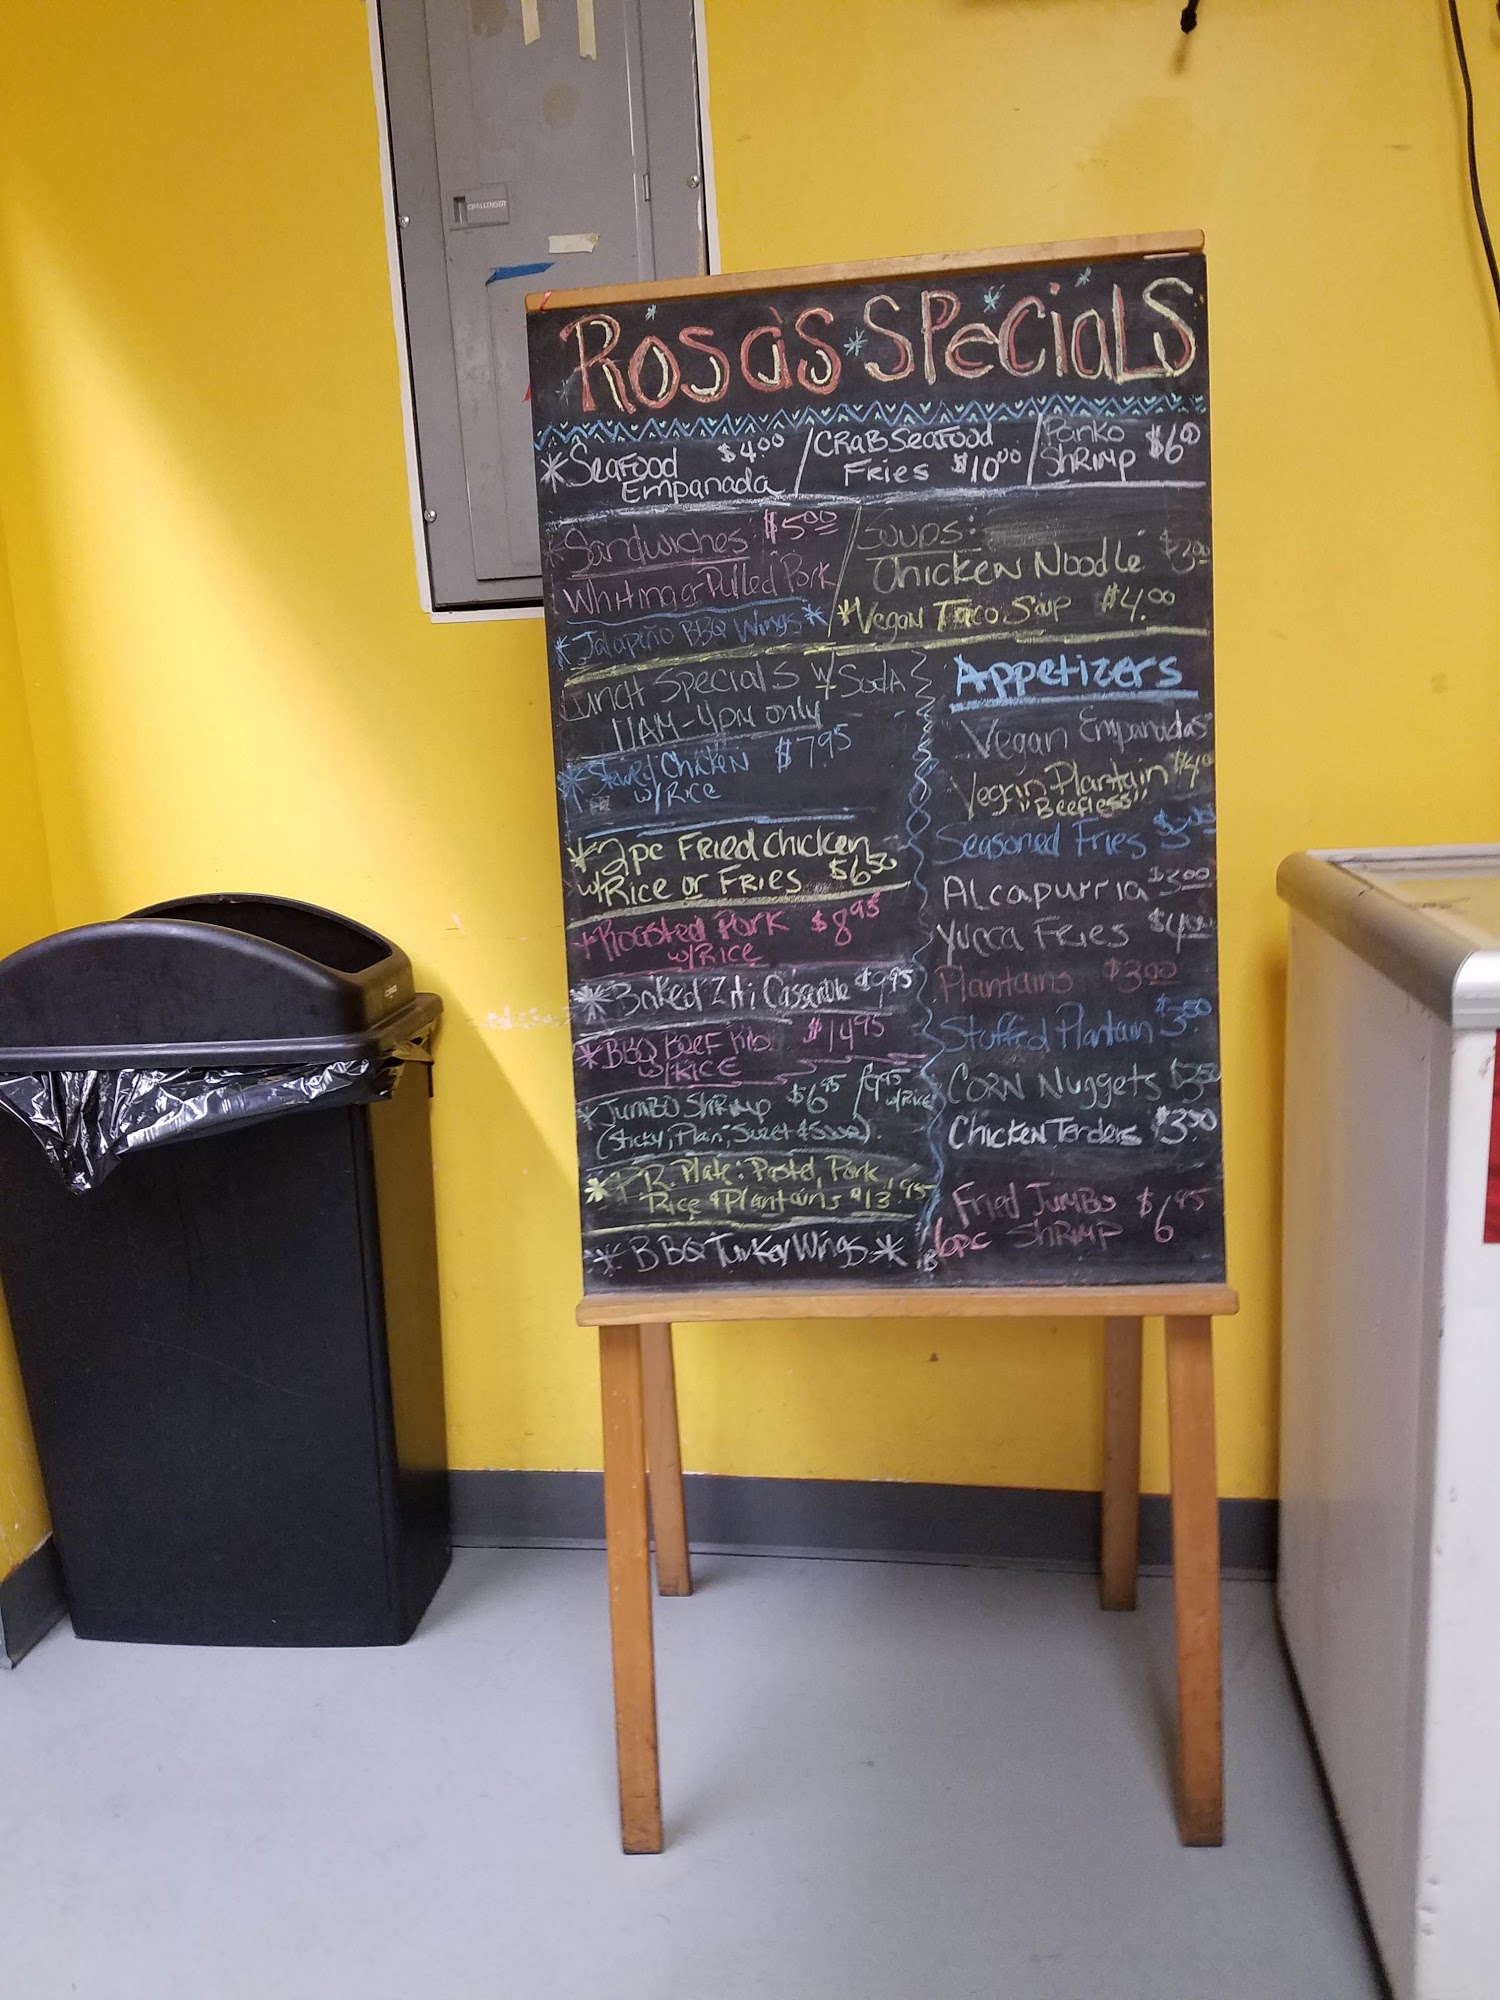 CHALLENGER
Rosa's Specials
*Seafood $4.00
Empanada
/ Crab Seafood
Fries $10.00
/ Panko
Shrimp $6.00
*Sandwiches $5.00
Whiting or Pulled Pork
*Jalapeño BBQ Wings*
Soups:
Chicken Noodle
*Vegan Taco Soup $4.00
Lunch Specials w/ Soda
11AM-4PM only
*Stewed Chicken $7.95
w/Rice
*2pc Fried Chicken
w/Rice or Fries $6.50
*Roasted Pork $8.95
w/Rice
*Baked Ziti Casserole $9.95
*BBQ Beef Rib $14.95
w/Rice
*Jumbo Shrimp $6.95 / $9.95 w/Rice
(Sticky, Plain, Sweet & Sour)
*P.R. Plate: Pastel, Pork,
Rice & Plantains $13.95
*BBQ Turkey Wings*
Appetizers
Vegan Empanadas
Vegan Plantain
"Beefless"
Seasoned Fries
Alcapurria $3.00
Yucca Fries $4.00
Plantains $3.00
Stuffed Plantain $3.50
Corn Nuggets
Chicken Tenders
Fried Jumbo $6.95
6pc Shrimp